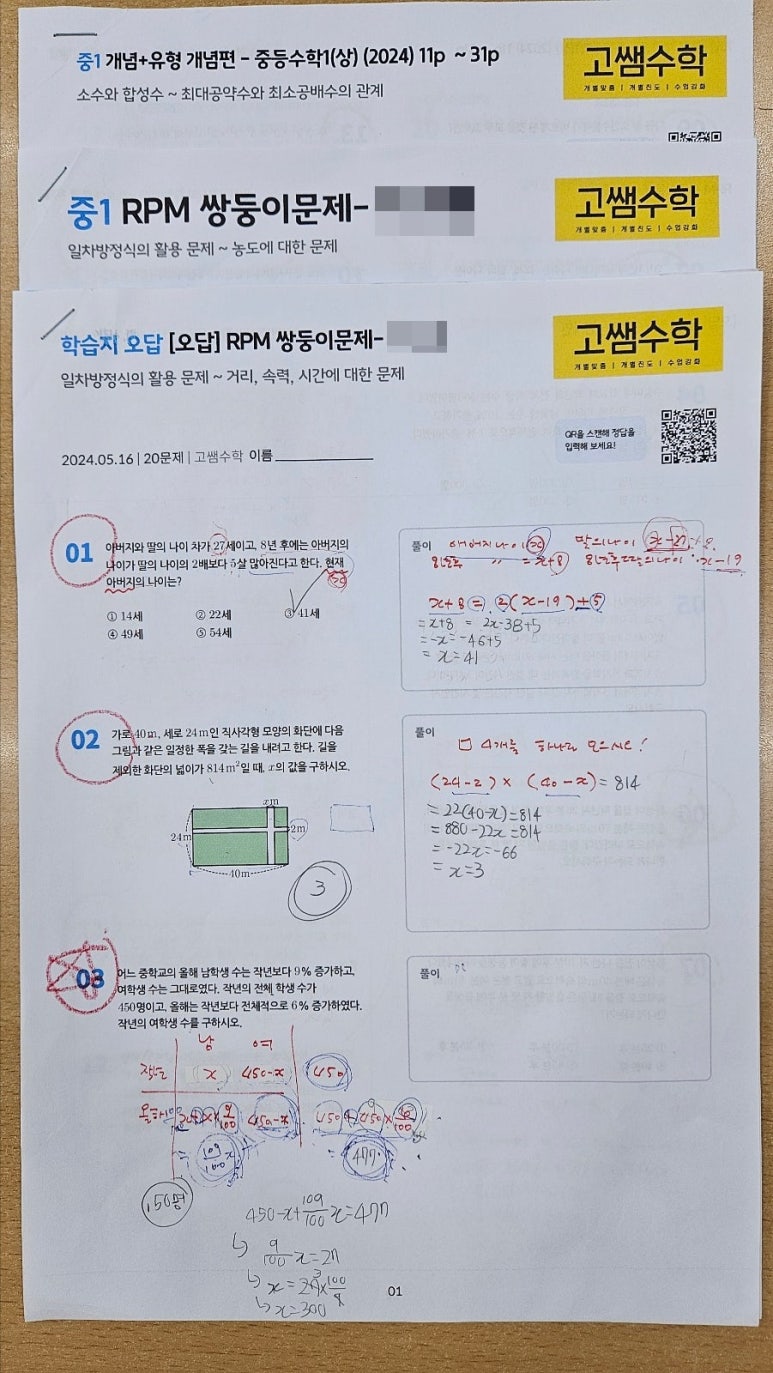 중1 개념+유형 개념편 - 중등수학1(상) (2024) 11p ~ 31p
소수와 합성수 ~ 최대공약수와 최소공배수의 관계
고쌤수학
개별맞춤 | 개별진도 | 수업강화
중1 RPM 쌍둥이문제-
일차방정식의 활용 문제 ~ 농도에 대한 문제
고쌤수학
개별맞춤 | 개별진도 | 수업강화
학습지 오답 [오답] RPM 쌍둥이문제-
일차방정식의 활용 문제 ~ 거리, 속력, 시간에 대한 문제
고쌤수학
개별맞춤 | 개별진도 | 수업강화
QR을 스캔해 정답을
입력해 보세요!
2024.05.16 | 20문제 | 고쌤수학 이름
01
아버지와 딸의 나이 차가 27세이고, 8년 후에는 아버지의
나이가 딸의 나이의 2배보다 5살 많아진다고 한다. 현재
아버지의 나이는?
① 14세 ② 22세 ③ 41세
④ 49세 ⑤ 54세
풀이
x+8 = 2(x-19)+5
=x+8 = 2x-38+5
=-x=-46+5
= x=41
02
가로 40m, 세로 24m인 직사각형 모양의 화단에 다음
그림과 같은 일정한 폭을 갖는 길을 내려고 한다. 길을
제외한 화단의 넓이가 814m²일 때, x의 값을 구하시오.
xm
24m
2m
40m
3
풀이
□ 4개를 하나로 모으시오!
(24-2) × (40-x)=814
=22(40-x)=814
=880-22x=814
=-22x=-66
= x=3
03
어느 중학교의 올해 남학생 수는 작년보다 9% 증가하고,
여학생 수는 그대로였다. 작년의 전체 학생 수가
450명이고, 올해는 작년보다 전체적으로 6% 증가하였다.
작년의 여학생 수를 구하시오.
풀이
남 여
작년 x 450-x 450
올해
450-x
109/100 x
477
150명
450-x+109/100 x=477
↳ 9/100 x=27
↳ x=300
01